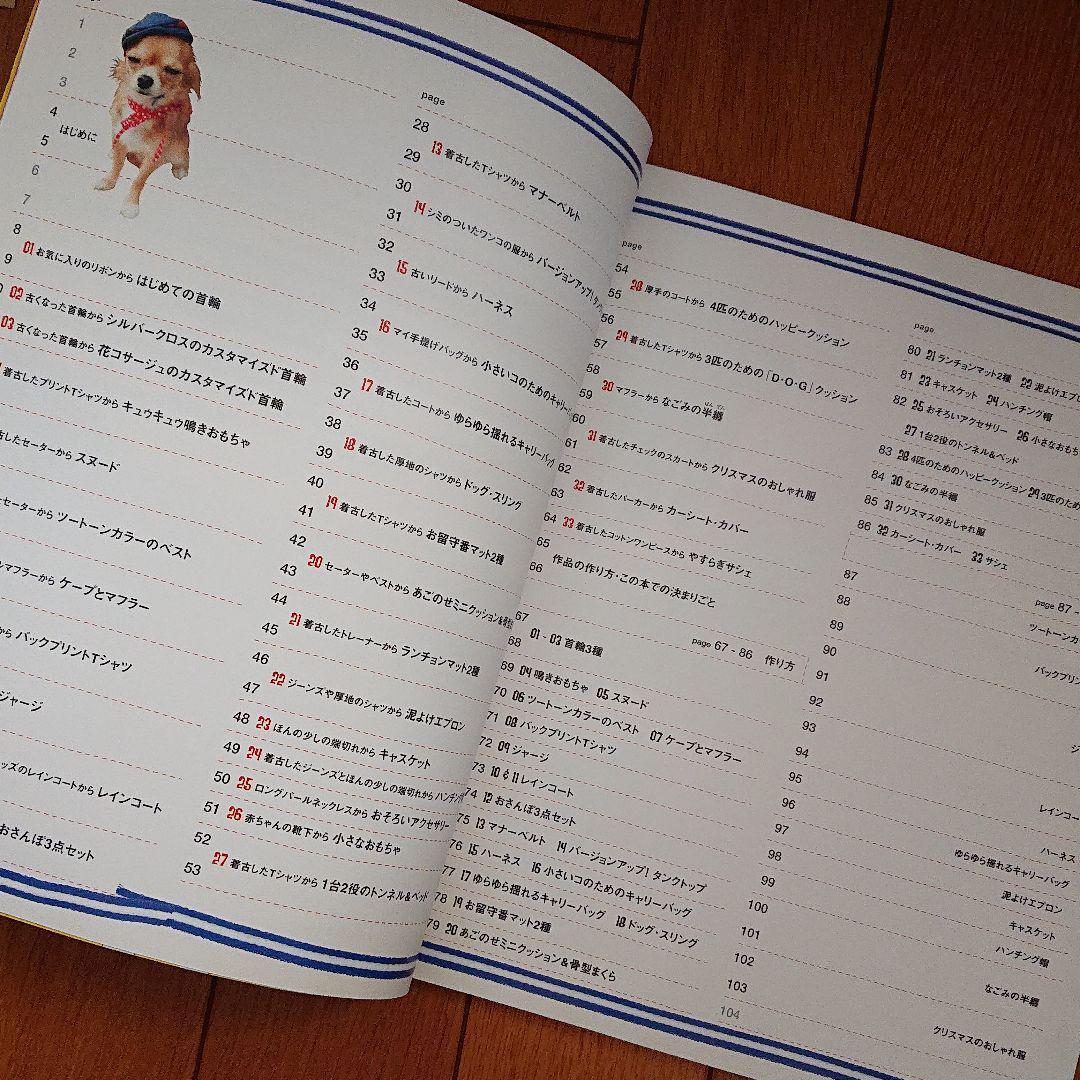 1
2
3
4
はじめに
5
6
7
8
01 お気に入りのリボンから はじめての首輪
9
02 古くなった首輪から シルバークロスのカスタマイズド首輪
03 古くなった首輪から 花コサージュのカスタマイズド首輪
着古したプリントTシャツから キュウキュウ鳴きおもちゃ
セーターから スヌード
セーターから ツートーンカラーのベスト
マフラーから ケープとマフラー
から バックプリントTシャツ
ジャージ
ッズのレインコートから レインコート
おさんぽ3点セット
page
28
13 着古したTシャツから マナーベルト
29
30
14 シミのついたワンコの服から バージョンアップ!
31
32
15 古いリードから ハーネス
33
34
16 マイ手提げバッグから 小さいコのためのキャリー
35
36
17 着古したコートから ゆらゆら揺れるキャリーバッグ
37
38
18 着古した厚地のシャツから ドッグ・スリング
39
40
19 着古したTシャツから お留守番マット2種
41
42
20 セーターやベストから あごのせミニクッション&骨型
43
44
21 着古したトレーナーから ランチョンマット2種
45
46
22 ジーンズや厚地のシャツから 泥よけエプロン
47
48
23 ほんの少しの端切れから キャスケット
49
24 着古したジーンズとほんの少しの端切れから ハンチング
50
25 ロングパールネックレスから おそろいアクセサリー
51
26 赤ちゃんの靴下から 小さなおもちゃ
52
27 着古したTシャツから 1台2役のトンネル&ベッド
53
page
54
28 厚手のコートから 4匹のためのハッピークッション
55
56
29 着古したTシャツから 3匹のための「D・O・G」クッション
57
58
30 マフラーから なごみの半纏
はんてん
59
60
31 着古したチェックのスカートから クリスマスのおしゃれ服
61
62
32 着古したパーカーから カーシート・カバー
63
64
33 着古したコットンワンピースから やすらぎサシェ
65
作品の作り方・この本での決まりごと
66
67
page 67 - 86 作り方
01 - 03 首輪3種
68
69 04 鳴きおもちゃ 05 スヌード
70 06 ツートーンカラーのベスト 07 ケープとマフラー
71 08 バックプリントTシャツ
72 09 ジャージ
73 10 & 11 レインコート
74 12 おさんぽ3点セット
75 13 マナーベルト 14 バージョンアップ! タンクトップ
76 15 ハーネス 16 小さいコのためのキャリーバッグ
77 17 ゆらゆら揺れるキャリーバッグ 18 ドッグ・スリング
78 19 お留守番マット2種
79 20 あごのせミニクッション&骨型まくら
page
80 21 ランチョンマット2種 22 泥よけエプロン
81 23 キャスケット 24 ハンチング帽
82 25 おそろいアクセサリー 26 小さなおもち
27 1台2役のトンネル&ベッド
83 28 4匹のためのハッピークッション 29 3匹のため
84 30 なごみの半纏
85 31 クリスマスのおしゃれ服
86 32 カーシート・カバー 33 サシェ
87
page 87 -
88
ツートーンカ
89
90
バックプリン
91
92
93
ジ
94
95
レインコー
96
97
ハーネス
98
ゆらゆら揺れるキャリーバッグ
99
泥よけエプロン
100
キャスケット
101
ハンチング帽
102
なごみの半纏
103
104
クリスマスのおしゃれ服